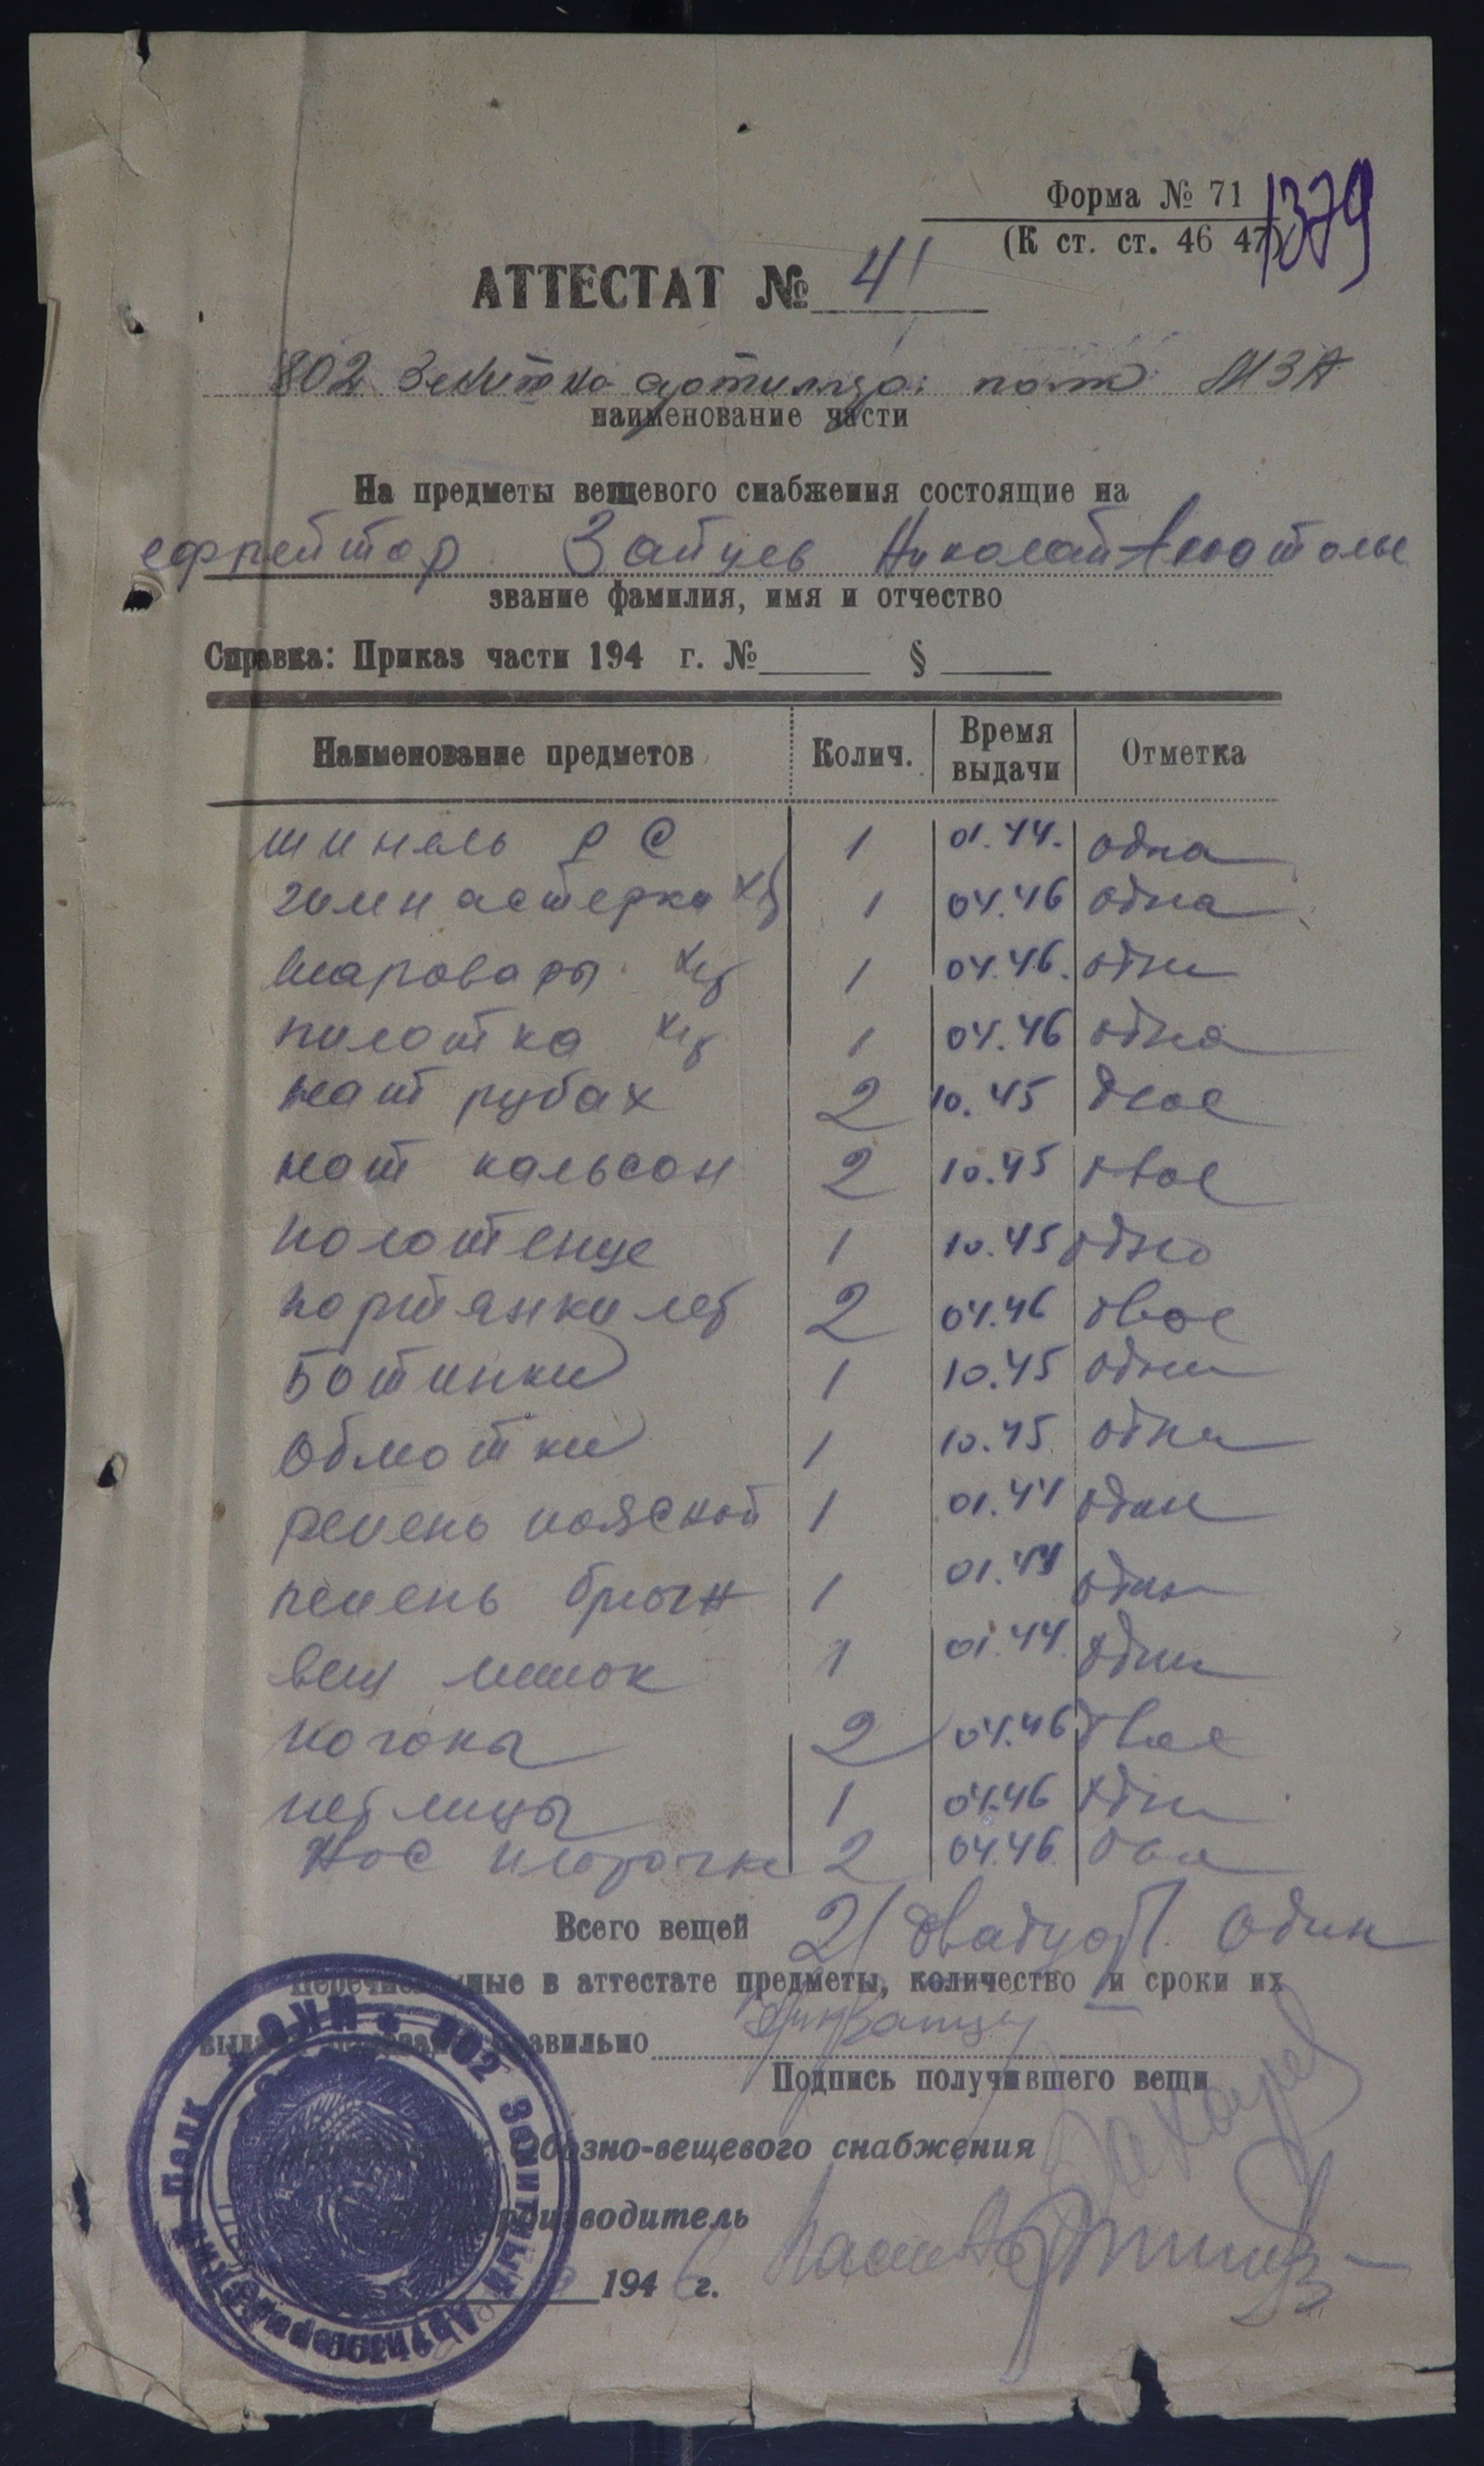 Форма № 71
1379
(К ст. ст. 46 47)
АТТЕСТАТ № 41
802 Зенитно артиллер. полк МЗА
наименование части
На предметы вещевого снабжения состоящие на
ефрейтор Зайцев Николай Анатолье
звание фамилия, имя и отчество
Справка: Приказ части 194 г. № § 
Наименование предметов Колич. Время выдачи Отметка
шинель РС 1 01.44. одна
гимнастерка х/б 1 04.46 одна
шаровары х/б 1 04.46. одни
пилотка х/б 1 04.46 одна
нат рубах 2 10.45 двое
нат кальсон 2 10.45 двое
полотенце 1 10.45 одно
портянки лет 2 04.46 двое
Ботинки 1 10.45 одни
Обмотки 1 10.45. одни
ремень поясной 1 01.44 один
ремень брючн 1 01.44 один
вещ мешок 1 01.44. один
погоны 2 04.46 двое
петлицы 1 04.46 одни
Нос платочк 2 04.46. два
Всего вещей 21 двадцать один
Перечисленные в аттестате предметы, количество и сроки их
правильно
Подпись получившего вещи
Обозно-вещевого снабжения
производитель
1946 г.
802 Зенитный Артиллерийский Полк